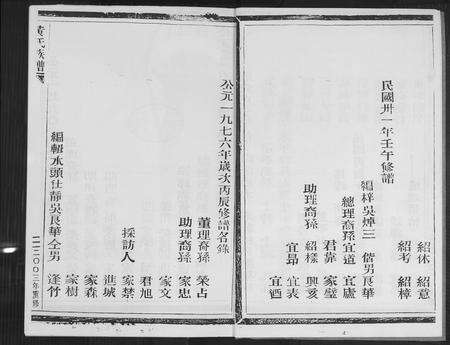 紹休 紹意
紹考 紹樟
民國卅一年壬午修譜
編梓吳焯三 偕男良華
總理裔孫宜道 宜廬
君靠 家璧
助理裔孫 紹樣 興亥
宜昂 宜表
宜酒
公元一九七六年歲次丙辰修譜名錄
董理裔孫 榮占
助理裔孫 家忠
家文
君旭
採訪人 家禁
進城
家森
家樹
編輯水頭仕靜吳良華仝男 逢竹
黃氏族譜
二〇〇三年重修